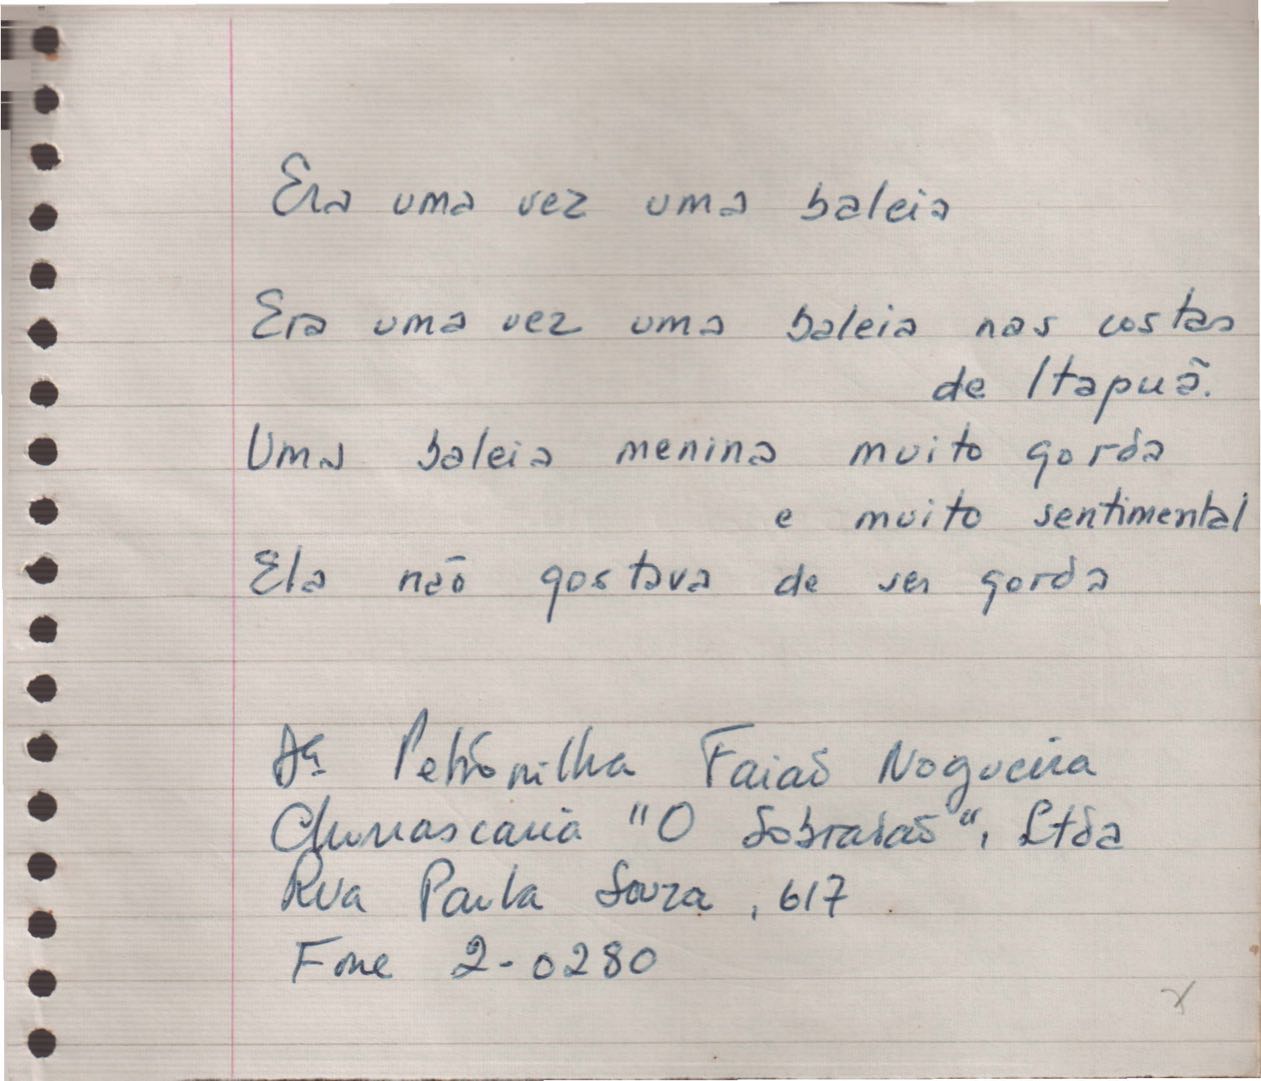 Era uma vez uma baleia
Era uma vez uma baleia nas costas
de Itapuã.
Uma baleia menina muito gorda
e muito sentimental
Ela não gostava de ser gorda
Petrônilha Faião Nogueira
Churrascaria "O Sobradão", Ltda
Rua Paula Souza, 617
Fone 2-0280